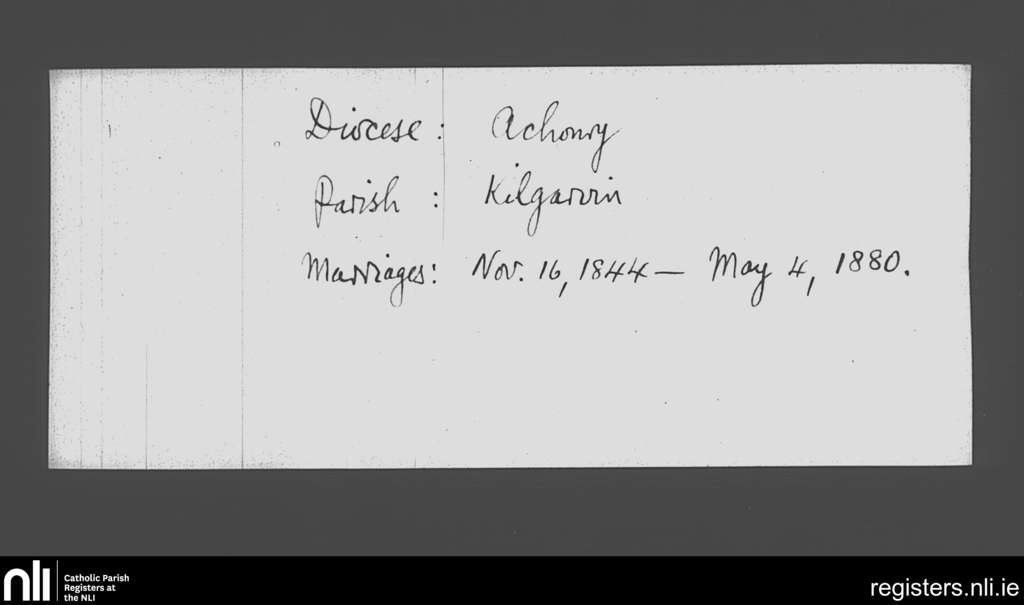 Diocese: Achonry
Parish: Kilgarvin
Marriages: Nov. 16, 1844 — May 4, 1880.
nli
Catholic Parish
Registers at
the NLI
registers.nli.ie